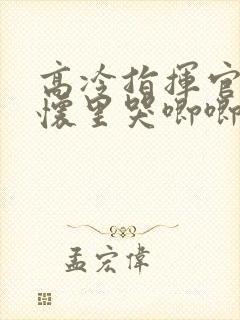 高冷指揮官
懷里哭唧唧
孟宏偉